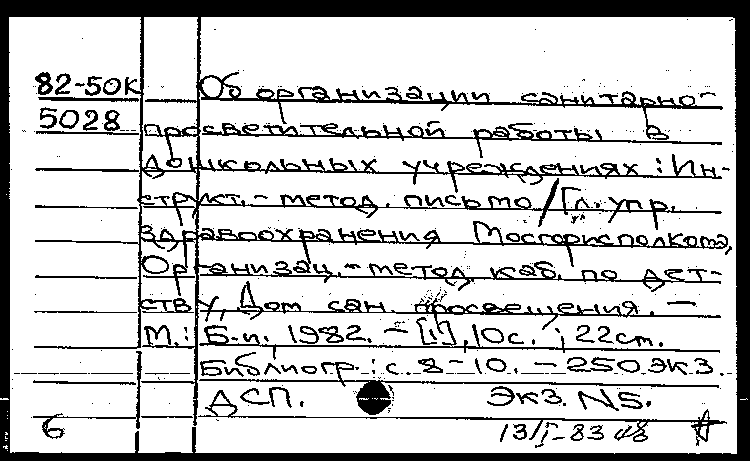 82-50К Об организации санитарно-
5028 просветительной работы в
дошкольных учреждениях : Ин-
структ.- метод. письмо / Гл. упр.
здравоохранения Мосгорисполкома,
Организац.- метод. каб. по дет-
ству, Дом сан. просвещения. —
М.: Б.и., 1982. — [1], 10 с. ; 22 см.
Библиогр.: с. 8-10. — 250 экз.
ДСП. Экз. N5.
6 13/I-83